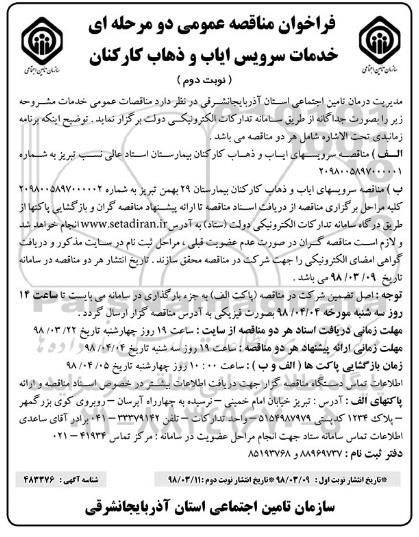 فراخوان مناقصه عمومی دو مرحله ای
خدمات سرویس ایاب و ذهاب کارکنان
( نوبت دوم )
سازمان تأمین اجتماعی
سازمان تأمین اجتماعی
مدیریت درمان تامین اجتماعی استان آذربایجانشرقی در نظر دارد مناقصات عمومی خدمات مشروحه
زیر را بصورت جداگانه از طریق سامانه تدارکات الکترونیکی دولت برگزار نماید. توضیح اینکه برنامه
زمانبندی تحت الاشاره شامل هر دو مناقصه می باشد .
الف ) مناقصه سرویسهای ایاب و ذهاب کارکنان بیمارستان استاد عالی نسب تبریز به شماره
۲۰۹۸۰۰۵۸۹۷۰۰۰۰۰۱
ب ) مناقصه سرویسهای ایاب و ذهاب کارکنان بیمارستان ۲۹ بهمن تبریز به شماره ۲۰۹۸۰۰۵۸۹۷۰۰۰۰۰۲
کلیه مراحل برگزاری مناقصه از دریافت اسناد مناقصه تا ارائه پیشنهاد مناقصه گران و بازگشایی پاکتها از
طریق درگاه سامانه تدارکات الکترونیکی دولت (ستاد) به آدرس www.setadiran.ir انجام خواهد شد
و لازم است مناقصه گران در صورت عدم عضویت قبلی ، مراحل ثبت نام در سایت مذکور و دریافت
گواهی امضای الکترونیکی را جهت شرکت در مناقصه محقق سازند . تاریخ انتشار هر دو مناقصه در سامانه
تاریخ ۹۸/۰۳/۰۹ می باشد .
توجه : اصل تضمین شرکت در مناقصه (پاکت الف) به جزء بارگذاری در سامانه می بایست تا ساعت ۱۴
روز سه شنبه مورخه ۹۸/۰۴/۰۴ بصورت فیزیکی به آدرس مناقصه گزار ارسال گردد .
مهلت زمانی دریافت اسناد هر دو مناقصه از سایت : ساعت ۱۹ روز چهارشنبه تاریخ ۹۸/۰۳/۲۲
مهلت زمانی ارائه پیشنهاد هر دو مناقصه : ساعت ۱۹ روز سه شنبه تاریخ ۹۸/۰۴/۰۴
زمان بازگشایی پاکت ها ( الف و ب ) : ساعت ۱۰:۰۰ روز چهارشنبه تاریخ ۹۸/۰۴/۰۵
اطلاعات تماس دستگاه مناقصه گزار جهت دریافت اطلاعات بیشتر در خصوص اسناد مناقصه و ارائه
پاکتهای الف : آدرس : تبریز خیابان امام خمینی – نرسیده به چهارراه آبرسان – روبروی کوی بزرگمهر
– پلاک ۱۲۳۴ کدپستی ۵۱۵۴۹۸۷۹۷۹ – واحد تدارکات – تلفن ۳۳۳۷۹۱۴۲ – ۰۴۱ برادر آقای ساعدی
اطلاعات تماس سامانه ستاد جهت انجام مراحل عضویت در سامانه : مرکز تماس ۴۱۹۳۴ – ۰۲۱
دفتر ثبت نام : ۸۸۹۶۹۷۳۷ و ۸۵۱۹۳۷۶۸
*تاریخ انتشار نوبت اول: ۹۸/۰۳/۰۹ *تاریخ انتشار نوبت دوم : ۹۸/۰۳/۱۱
شناسه آگهی: ۴۸۳۳۷۶
سازمان تامین اجتماعی استان آذربایجانشرقی